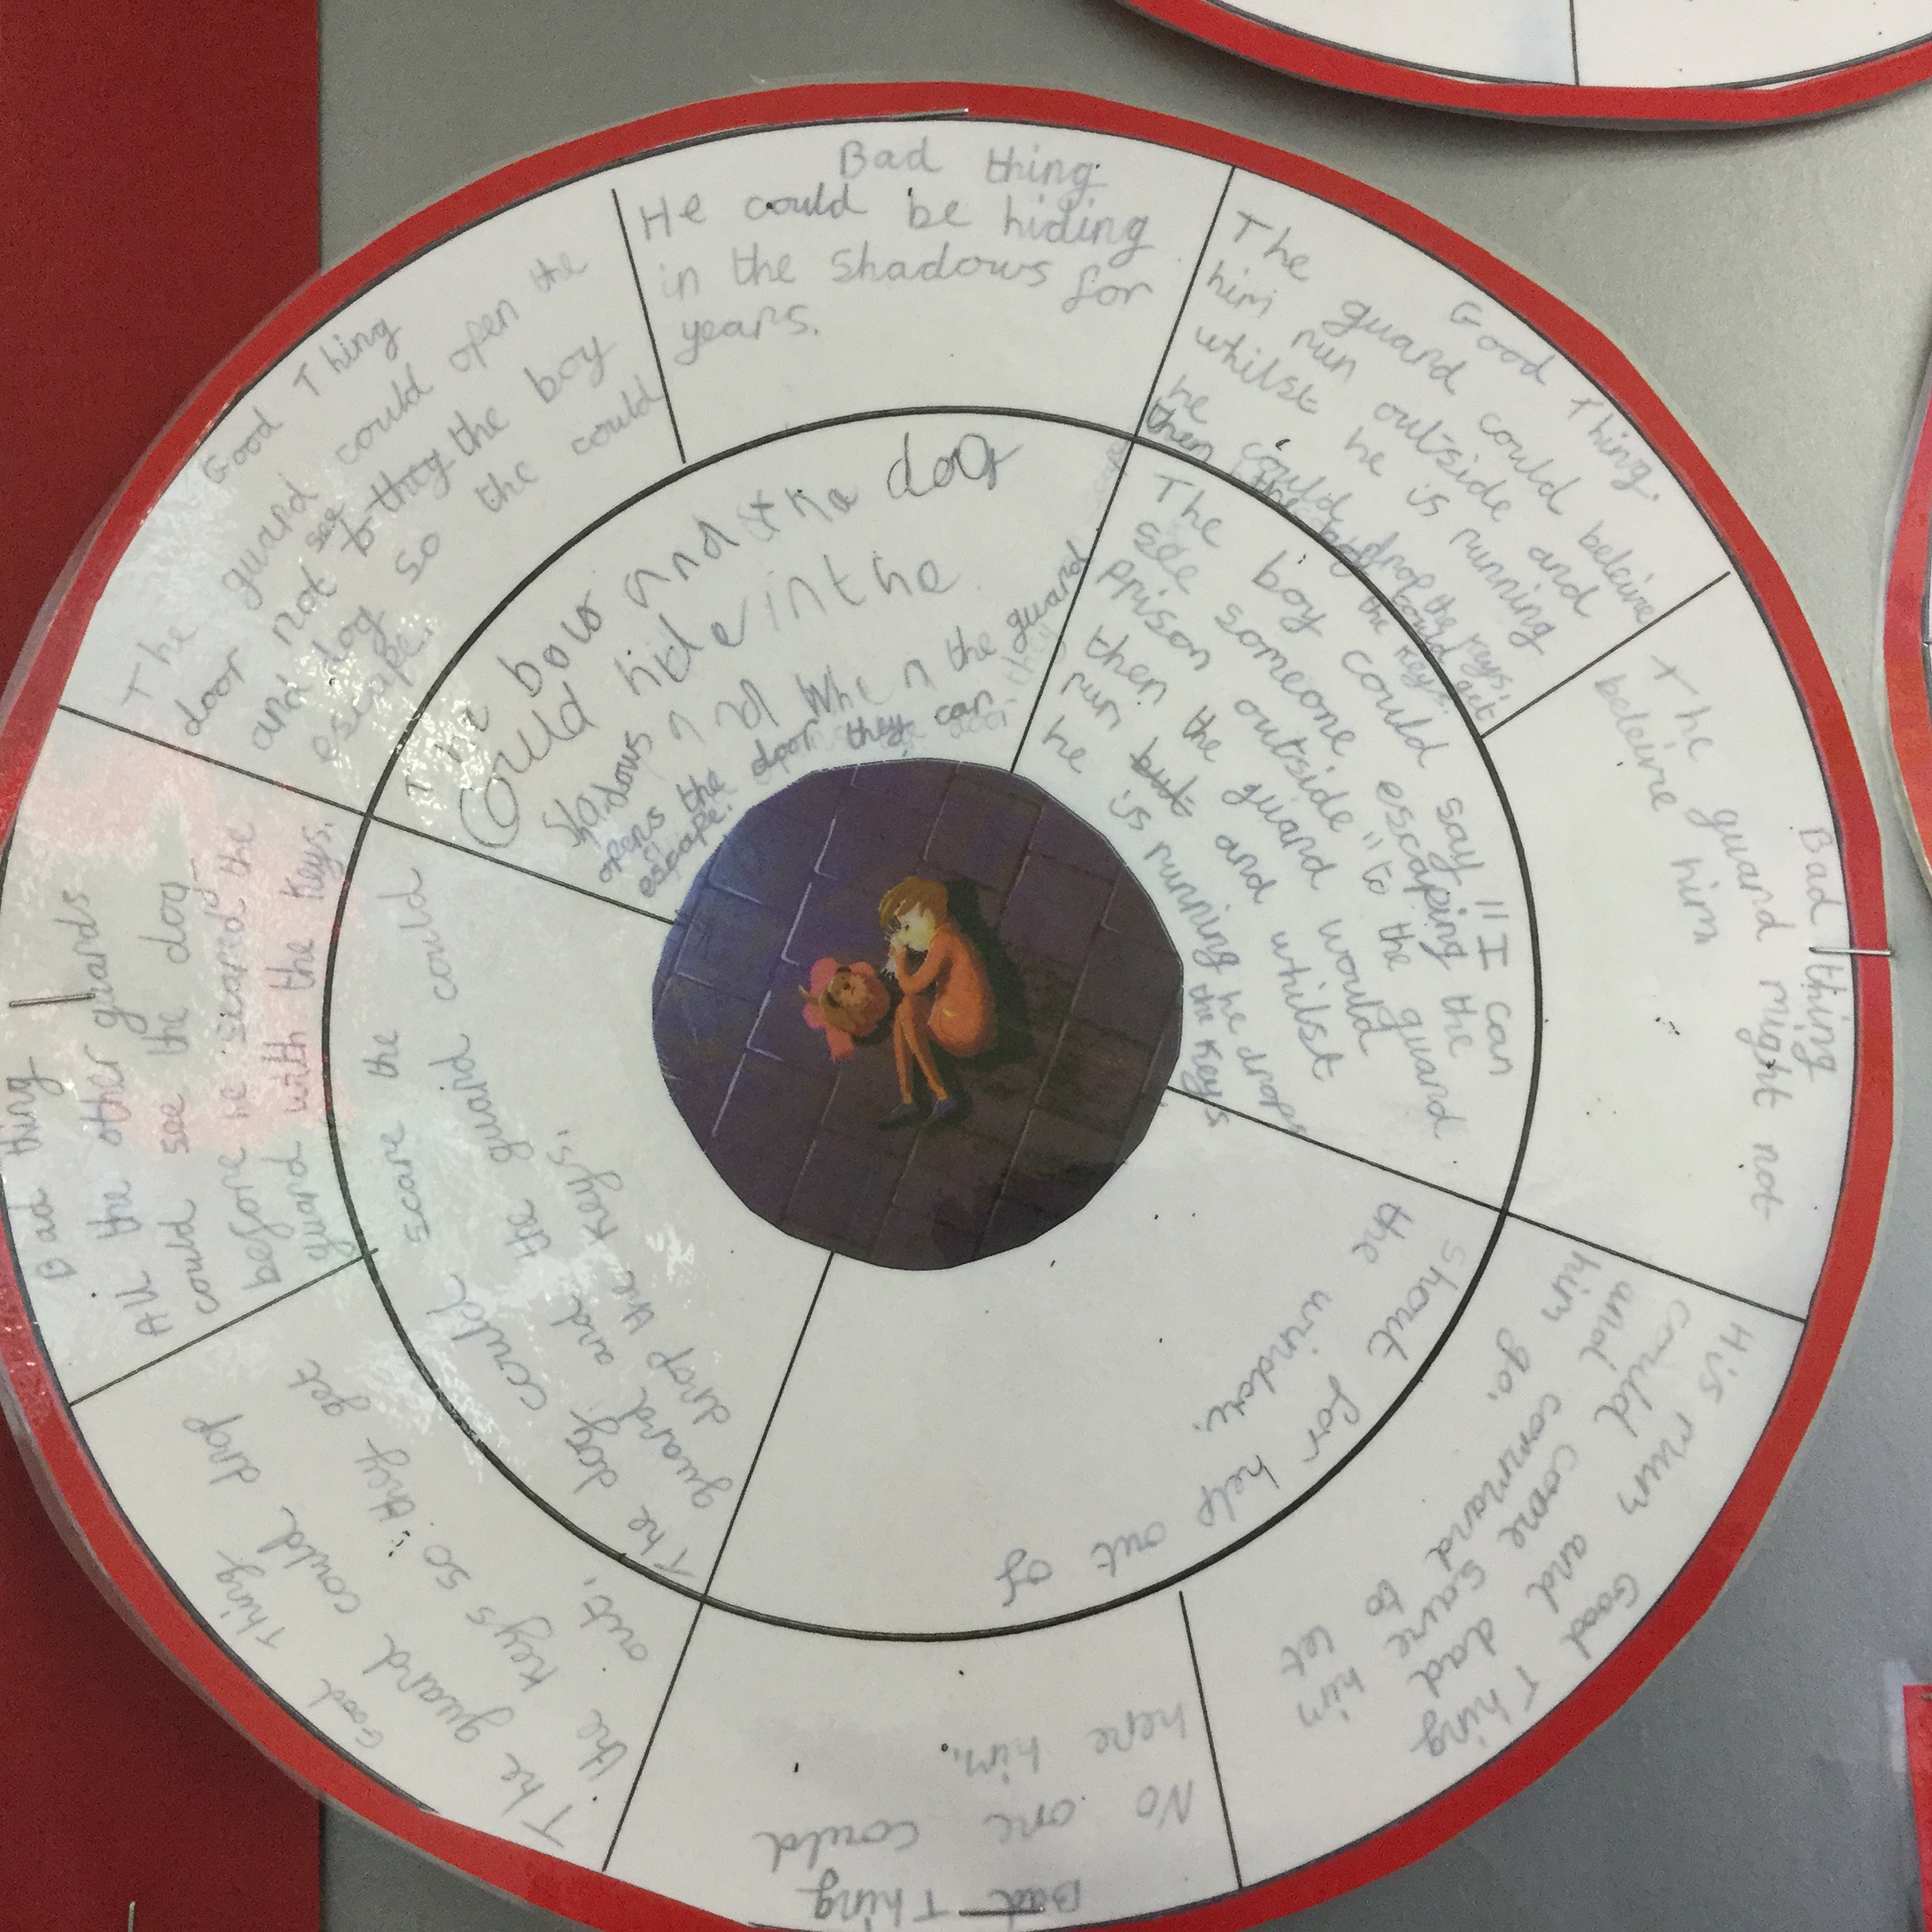 Bad thing
He could be hiding
in the shadows for
years.
Good Thing.
The guard could beleive
him run outside and
whilst he is running
he could drop the keys,
then the boy could get
the keys.
Bad thing
The guard might not
beleive him
Good Thing
His mum and dad
could come save him
and command to let
him go.
Bad Thing
No one could
here him.
Good Thing
The guard could drop
the keys so they get
out.
Bad thing
All the other guards
could see the dog
before he scared the
guard with the keys.
Good Thing
The guard could open the
door and not see the boy
and dog so the could
escape.
The boy and the dog
could hide in the
shadows and when the guard
opens the door they can
escape.
The boy could say "I can
see someone escaping the
prison outside" to the guard
then the guard would
run but and whilst
he is running he drops
the keys
shout for help out of
the window.
The dog could scare the
guard and the guard could
drop the keys.